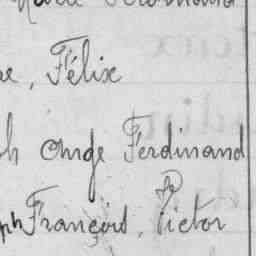 Ferdinand
e, Félix
h Ange Ferdinand
ph François, Victor